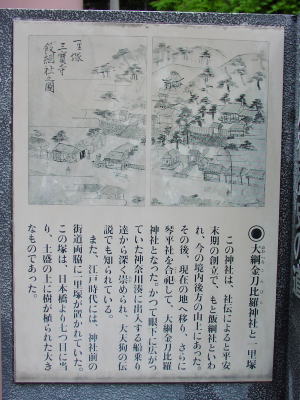 一里塚
三寳寺
飯綱社之圖
◉大綱金刀比羅神社と一里塚
この神社は、社伝によると平安
末期の創立で、もと飯綱社といわ
れ、今の境内後方の山上にあった。
その後、現在の地へ移り、さらに
琴平社を合祀して、大綱金刀比羅
神社となった。かつて眼下に広がっ
ていた神奈川湊に出入する船乗り
達から深く崇められ、大天狗の伝
説でも知られている。
また、江戸時代には、神社前の
街道両脇に一里塚が置かれていた。
この塚は、日本橋より七つ目に当
り、土盛の上に樹が植られた大き
なものであった。